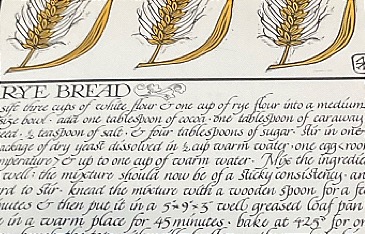 RYE BREAD
sift three cups of white flour & one cup of rye flour into a medium
size bowl · add one tablespoon of cocoa · one tablespoon of caraway
seed · ½ teaspoon of salt · & four tablespoons of sugar · stir in one
package of dry yeast dissolved in ½ cup warm water · one egg room
temperature & up to one cup of warm water · Mix the ingredie
well · the mixture should now be of a sticky consistency · an
rd to stir · knead the mixture with a wooden spoon for a fe
nutes & then put it in a 5×9×3 well greased loaf pan
e in a warm place for 45 minutes · bake at 425° for on